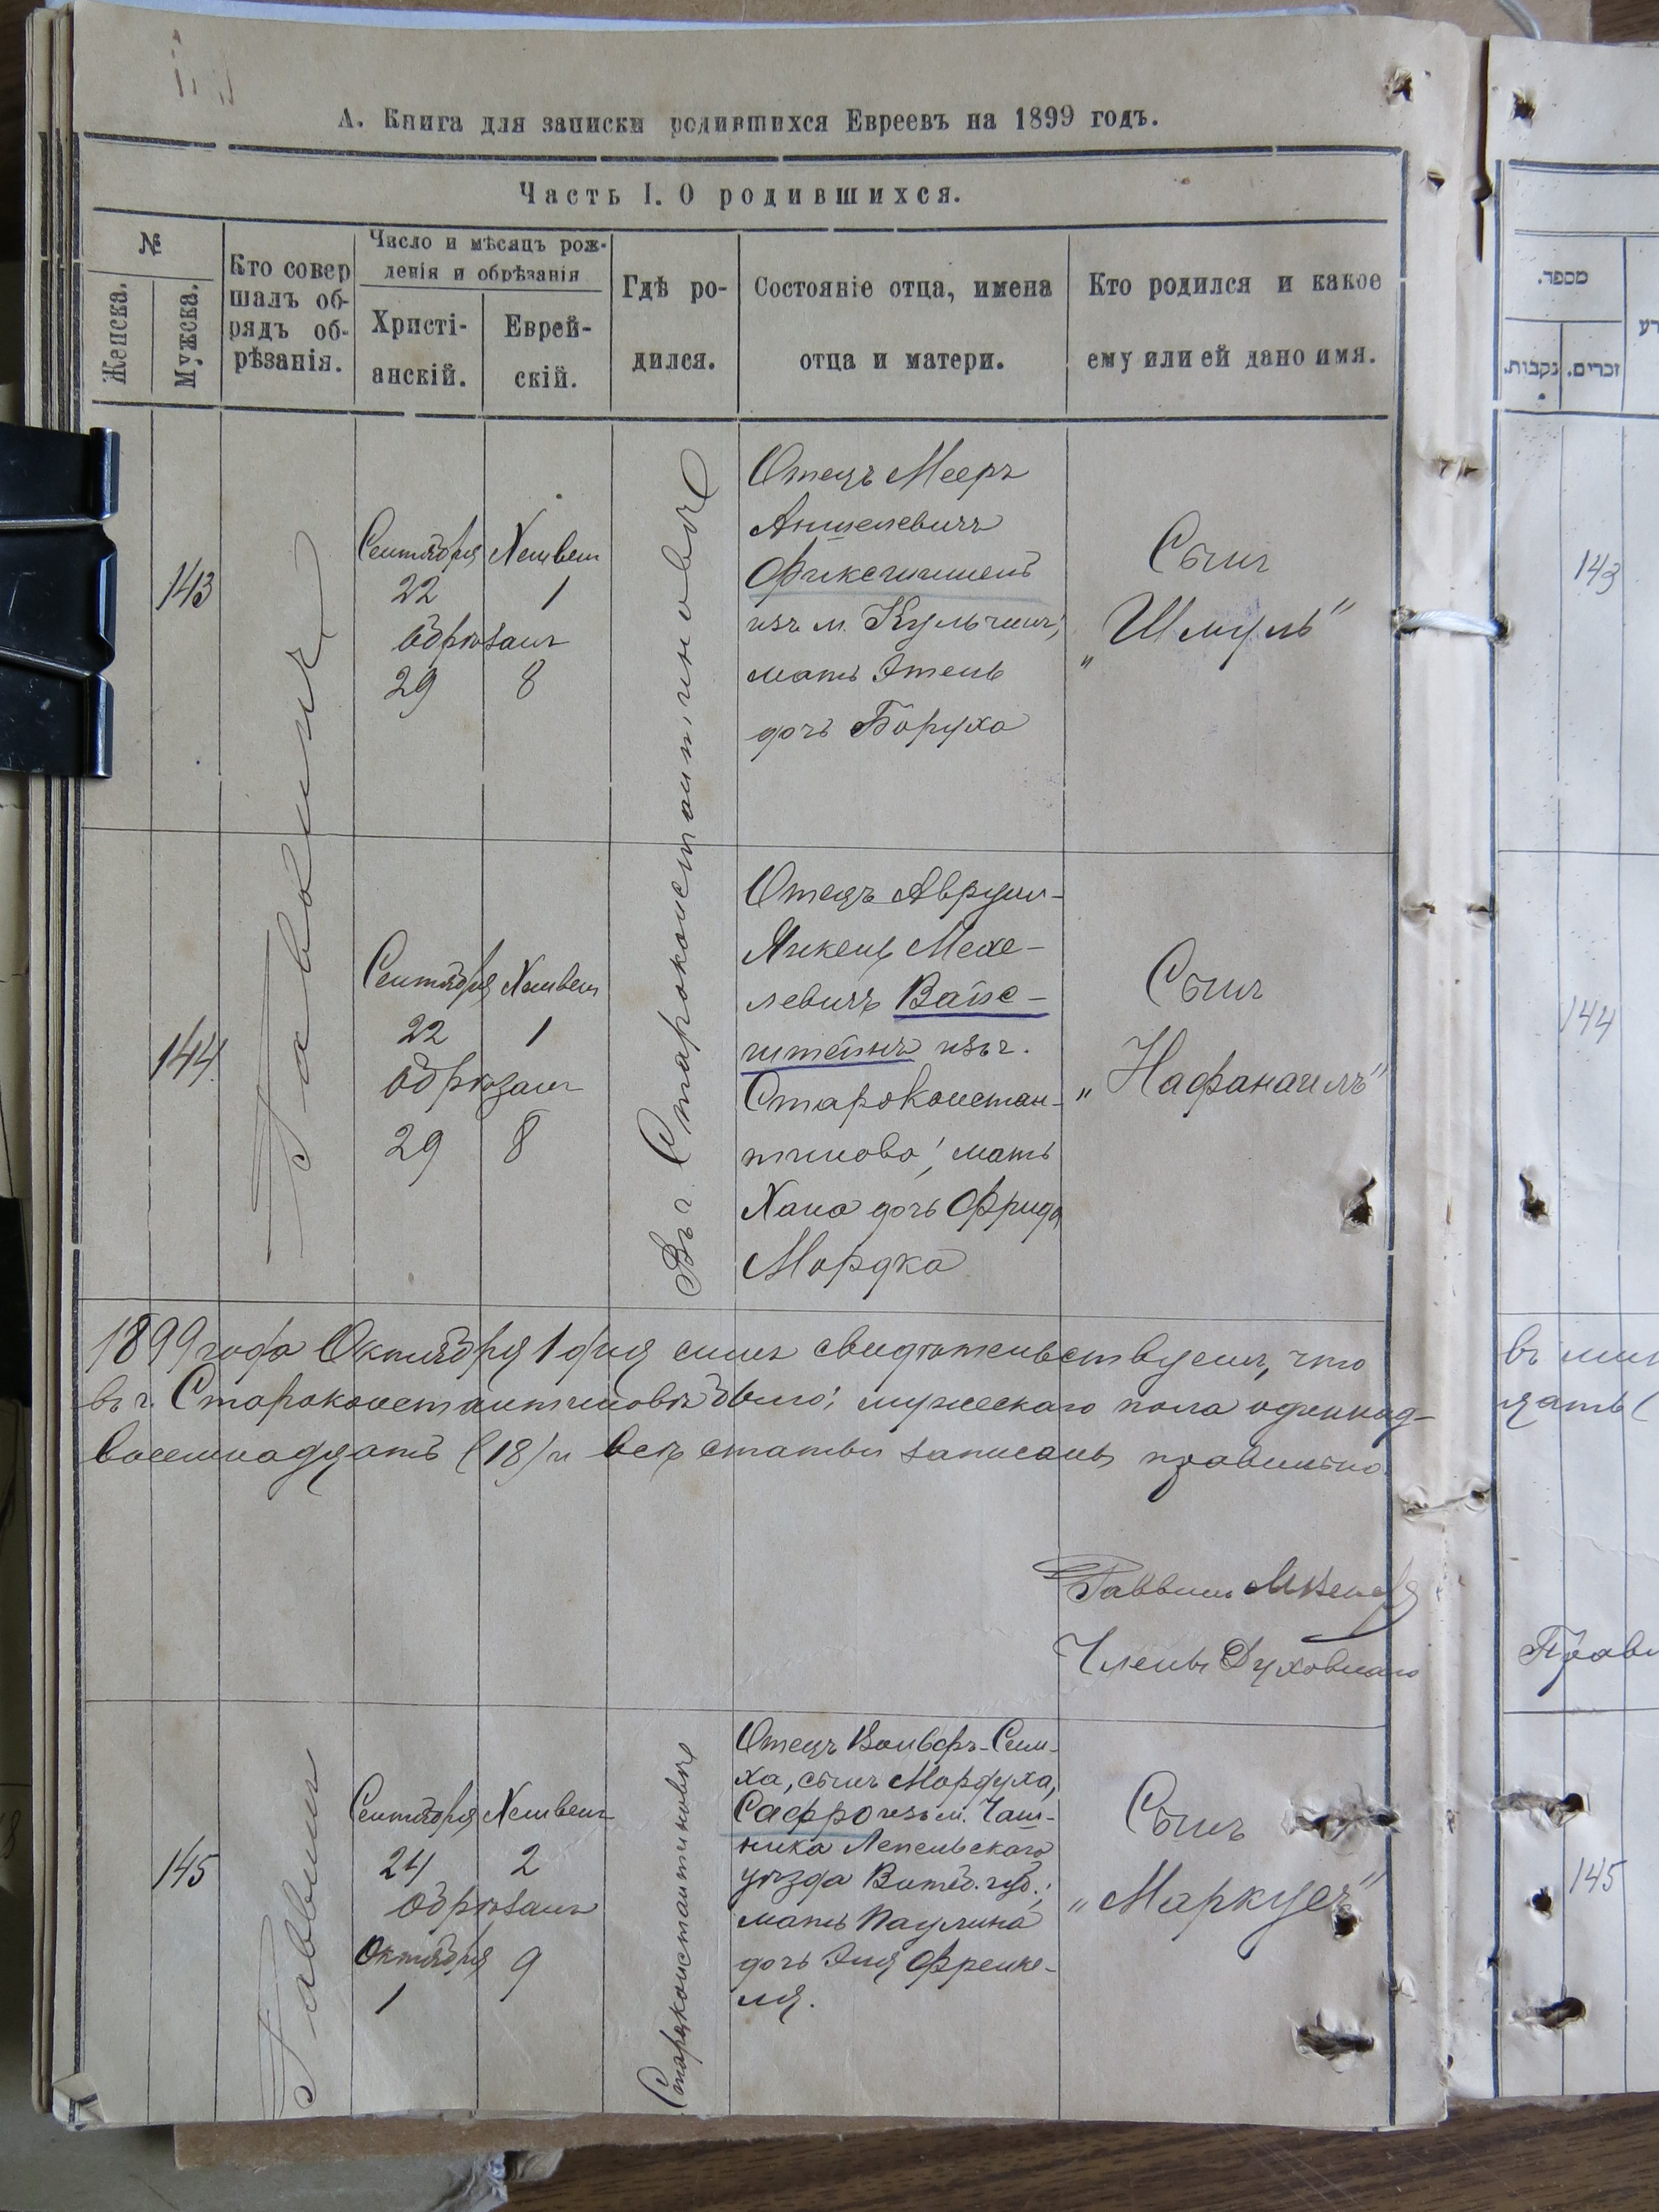 А. Книга для записки родившихся Евреевъ на 1899 годъ.
Часть I. О родившихся.
№
Женска.
Мужска.
Кто совер
шалъ об-
рядъ об-
рѣзанія.
Число и мѣсяцъ рож-
денія и обрѣзанія
Христі-
анскій.
Еврей-
скій.
Гдѣ ро-
дился.
Состояніе отца, имена
отца и матери.
Кто родился и какое
ему или ей дано имя.
מספר.
נקבות.
זכרים.
143
Раввинъ
Сентября Хешвен
22 1
обрѣзанъ
29 8
Въ г. Староконстантиновѣ
Отецъ Мееръ
Аншелевичъ
изъ м. Кульчинъ,
мать Этель
дочь Боруха
Сынъ
„Шмуль"
143
144.
Сентября Хешвен
22 1
обрѣзанъ
29 8
Отецъ Аврум-
Янкель Мехе-
левичъ Вайс-
штейнъ изъ г.
Староконстан-
тинова, мать
Хана дочь
Мордка
Сынъ
„Нафанаилъ"
144
1899 года Октября 1 дня симъ свидѣтельствуемъ, что
въ г. Староконстантиновѣ было: мужескаго пола
восемнадцать (18) и всѣ статьи записаны правильно.
Раввинъ
Члены Духовнаго
145
Раввинъ
Сентября Хешвенъ
24 2
обрѣзанъ
Октября 9
1
Староконстантиновѣ
Отецъ Вольфъ-Сим-
ха, сынъ Мордуха,
Сафро изъ м. Чаш-
ника Лепельскаго
уѣзда Витеб. губ.;
мать Паулина
дочь Эля Френке-
ля.
Сынъ
„Маркусъ"
145